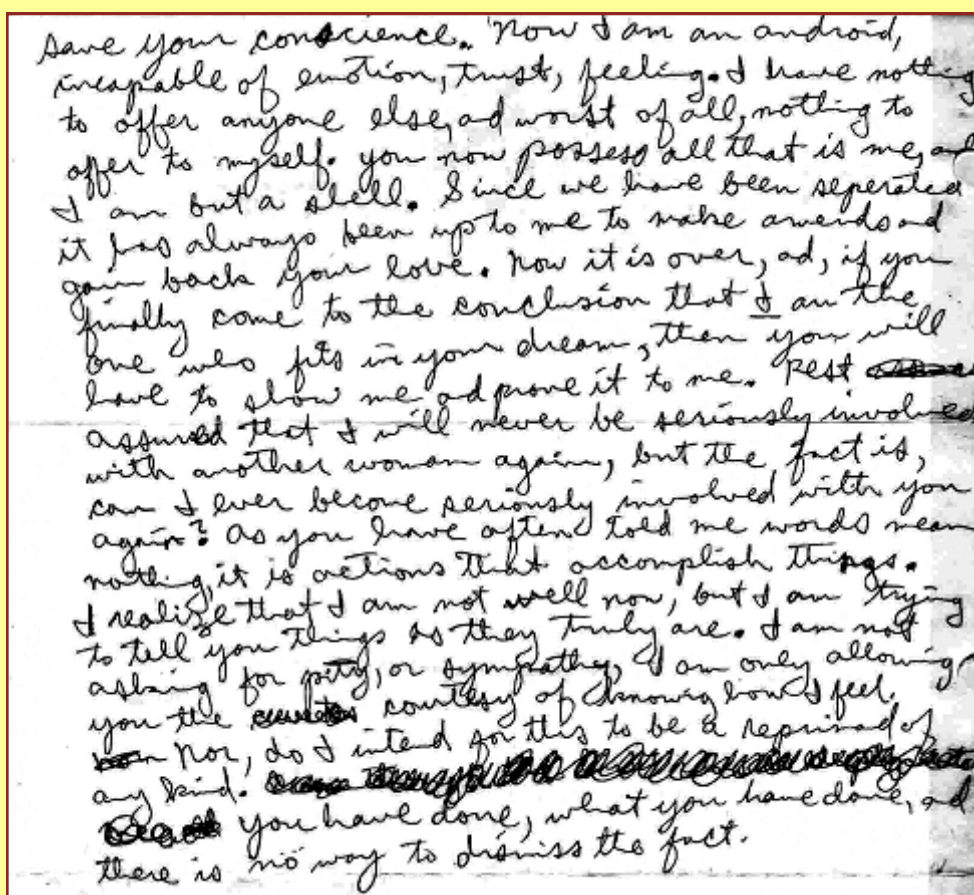 save your conscience. Now I am an android,
incapable of emotion, trust, feeling. I have nothing
to offer anyone else, ad worst of all, nothing to
offer to myself. you now possess all that is me, and
I am but a shell. Since we have been seperated
it has always been up to me to make amends ad
gain back your love. Now it is over, ad, if you
finally come to the conclusion that I am the
one who fits in your dream, then you will
have to show me ad prove it to me. Rest
assured that I will never be seriously involved
with another woman again, but the fact is,
can I ever become seriously involved with you
again? As you have often told me words mean
nothing, it is actions that accomplish things.
I realize that I am not well now, but I am trying
to tell you things as they truly are. I am not
asking for pity, or sympathy, I am only allowing
you the courtesy of knowing how I feel.
Nor, do I intend for this to be a reprimand of
any kind.
you have done, what you have done, ad
there is no way to dismiss the fact.